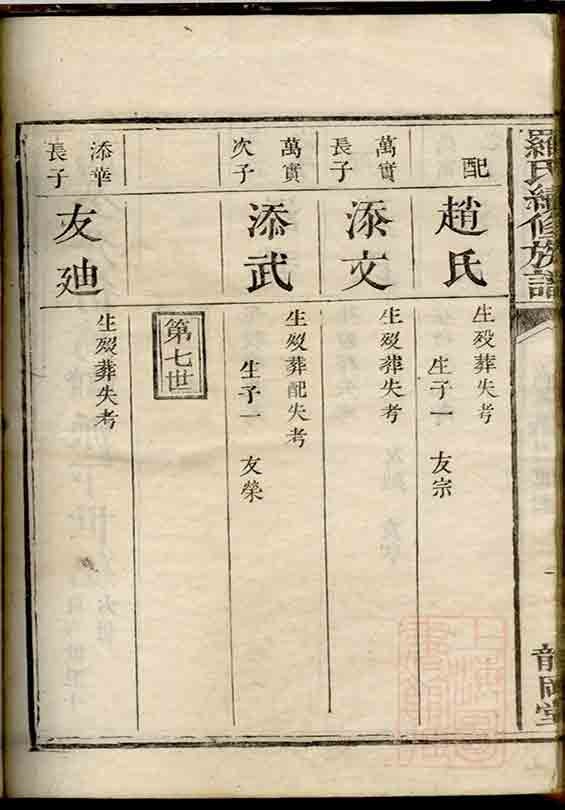 羅氏續修族譜
配
趙氏
生歿葬失考
生子一 友宗
萬實
長子
添文
生歿葬失考
萬實
次子
添武
生歿葬配失考
生子一 友榮
第七世
添華
長子
友廸
生歿葬失考